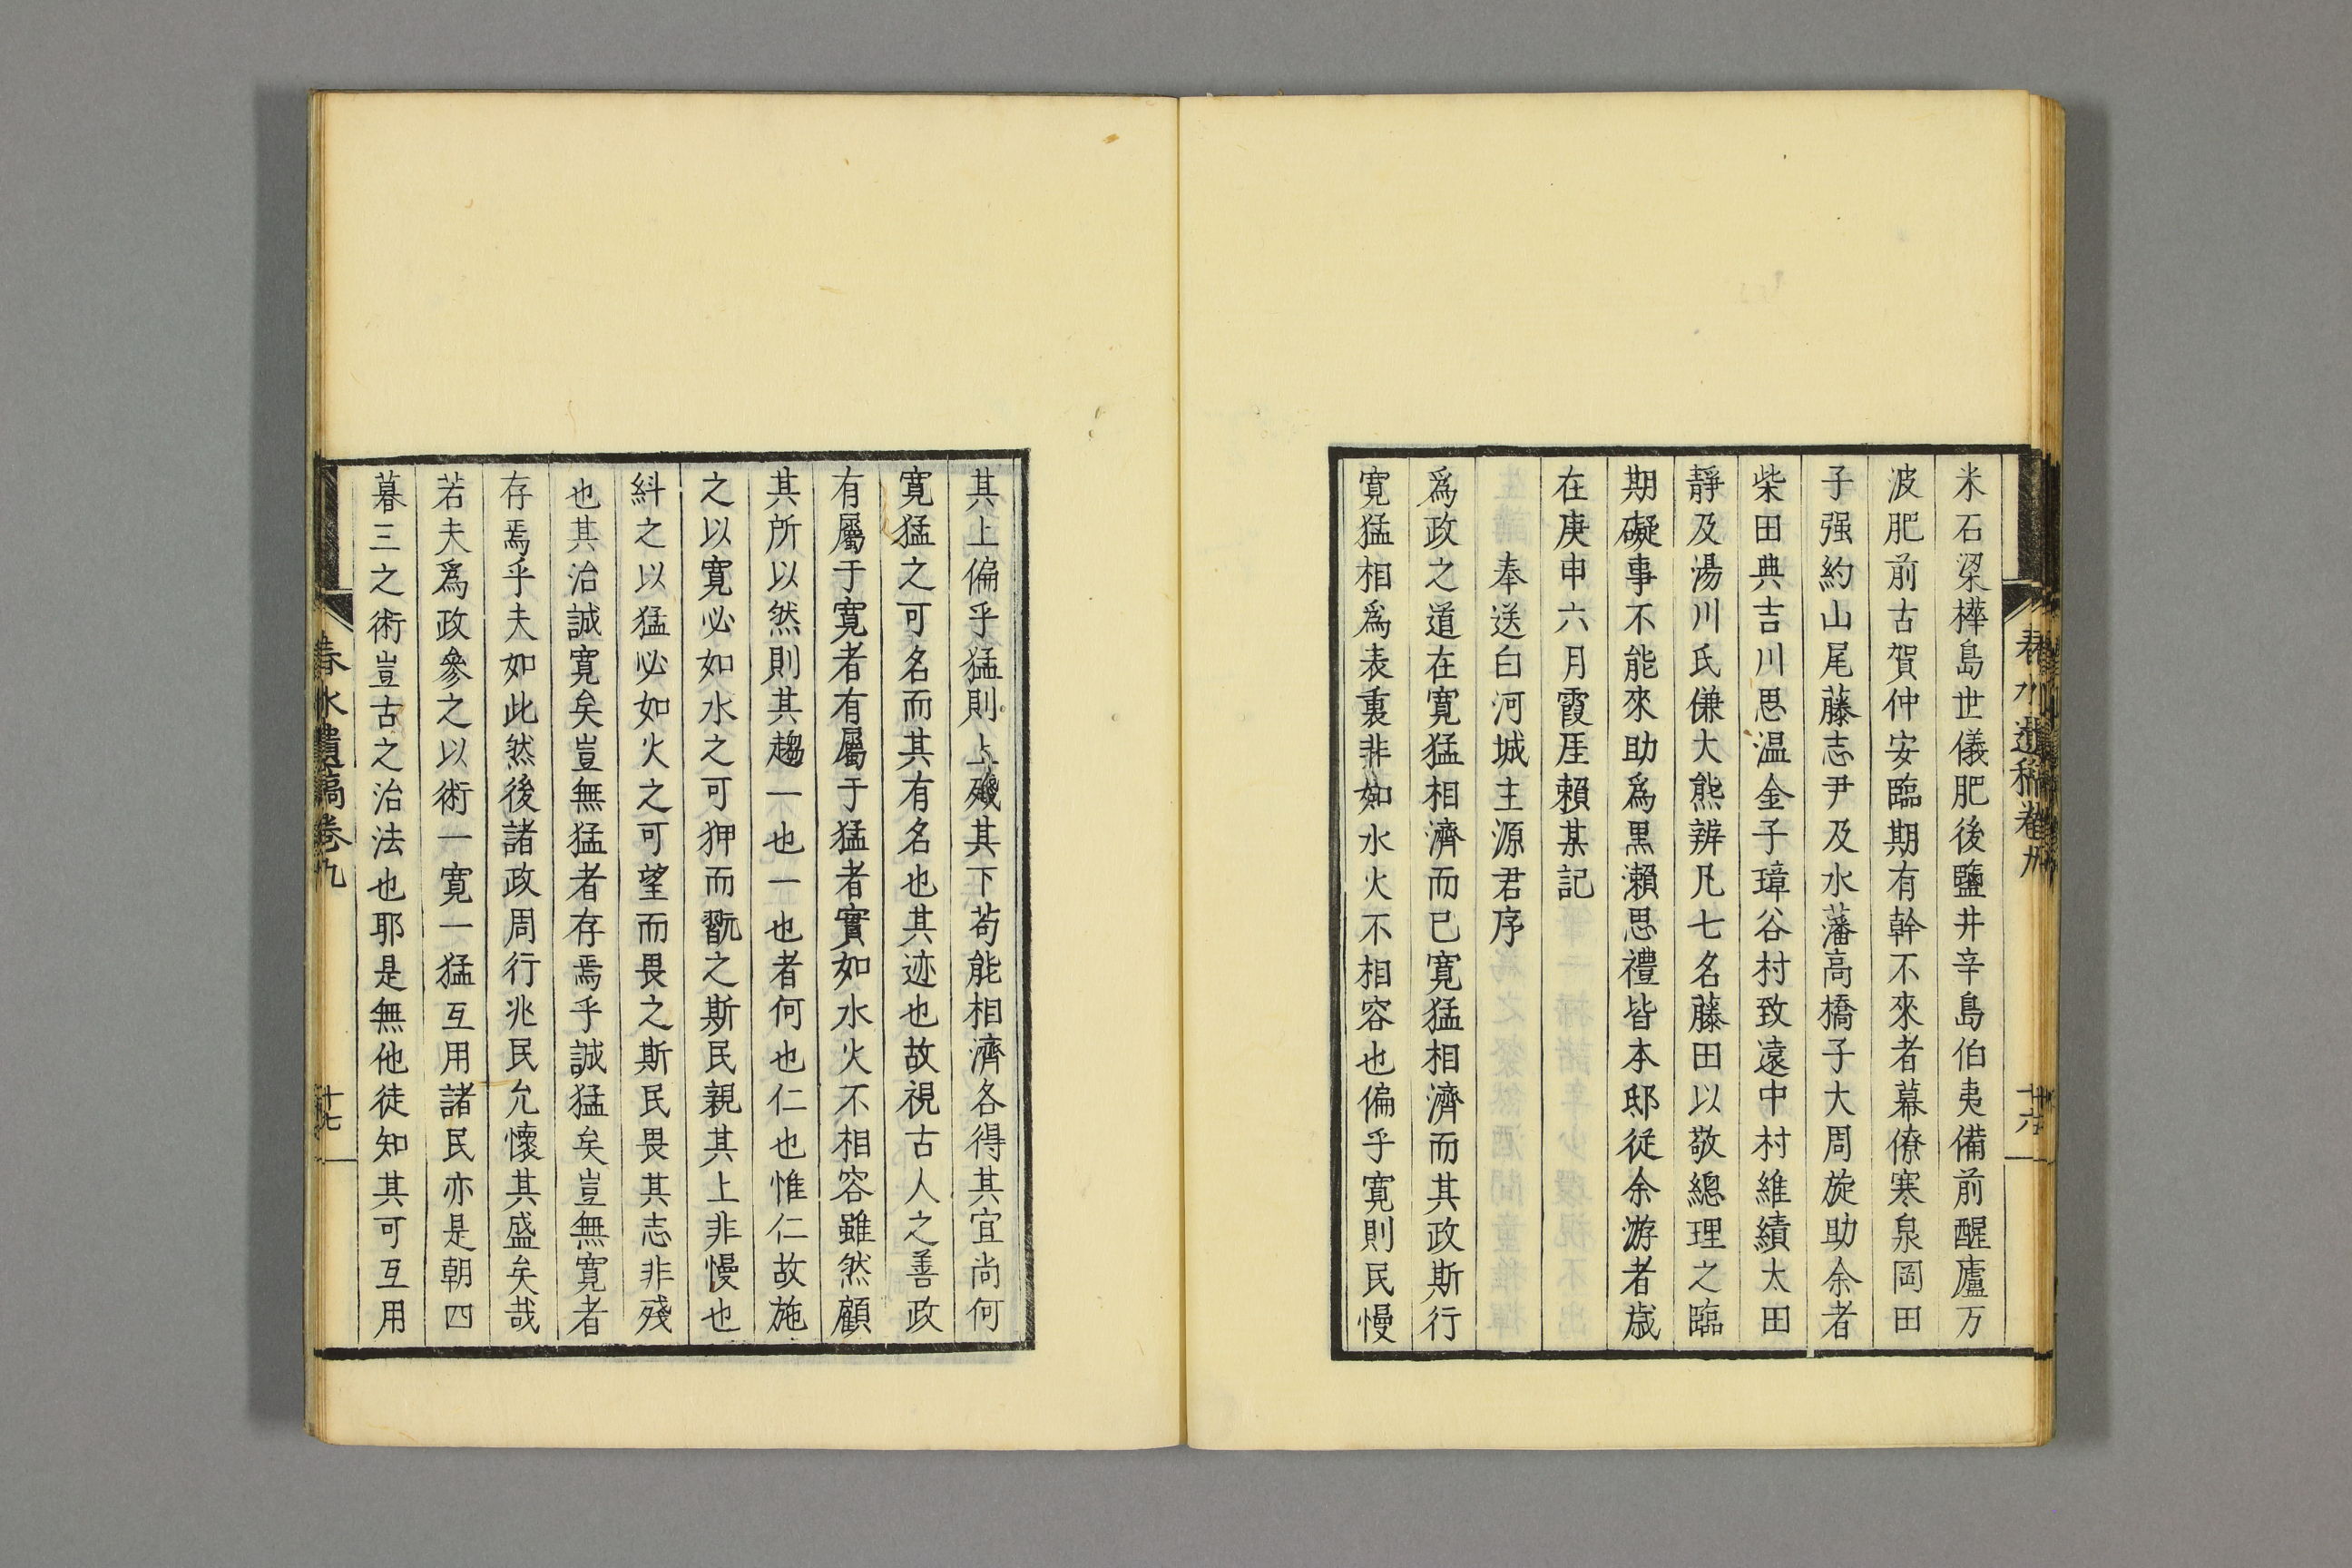 春水遺稿卷九
十六
米石梁樺島世儀肥後鹽井辛島伯夷備前醒廬万
波肥前古賀仲安臨期有幹不來者幕僚寒泉岡田
子强約山尾藤志尹及水藩高橋子大周旋助余者
柴田典吉川思温金子璋谷村致遠中村維績太田
靜及湯川氏傔大熊辨凡七名藤田以敬總理之臨
期礙事不能來助爲黒瀬思禮皆本邸從余游者歳
在庚申六月霞厓賴某記
奉送白河城主源君序
爲政之道在寛猛相濟而已寛猛相濟而其政斯行
寛猛相爲表裏非如水火不相容也偏乎寛則民慢
其上偏乎猛則上殘其下苟能相濟各得其宜尚何
寛猛之可名而其有名也其迹也故視古人之善政
有屬于寛者有屬于猛者實如水火不相容雖然顧
其所以然則其趨一也一也者何也仁也惟仁故施
之以寛必如水之可狎而翫之斯民親其上非慢也
糾之以猛必如火之可望而畏之斯民畏其志非殘
也其治誠寛矣豈無猛者存焉乎誠猛矣豈無寛者
存焉乎夫如此然後諸政周行兆民允懷其盛矣哉
若夫爲政參之以術一寛一猛互用諸民亦是朝四
暮三之術豈古之治法也耶是無他徒知其可互用
春水遺稿卷九
十七